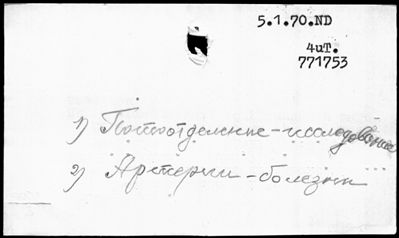 5.1.70.ND
4иТ.
771753
1) Потоотделение-исследование
2) Артерии-болезни